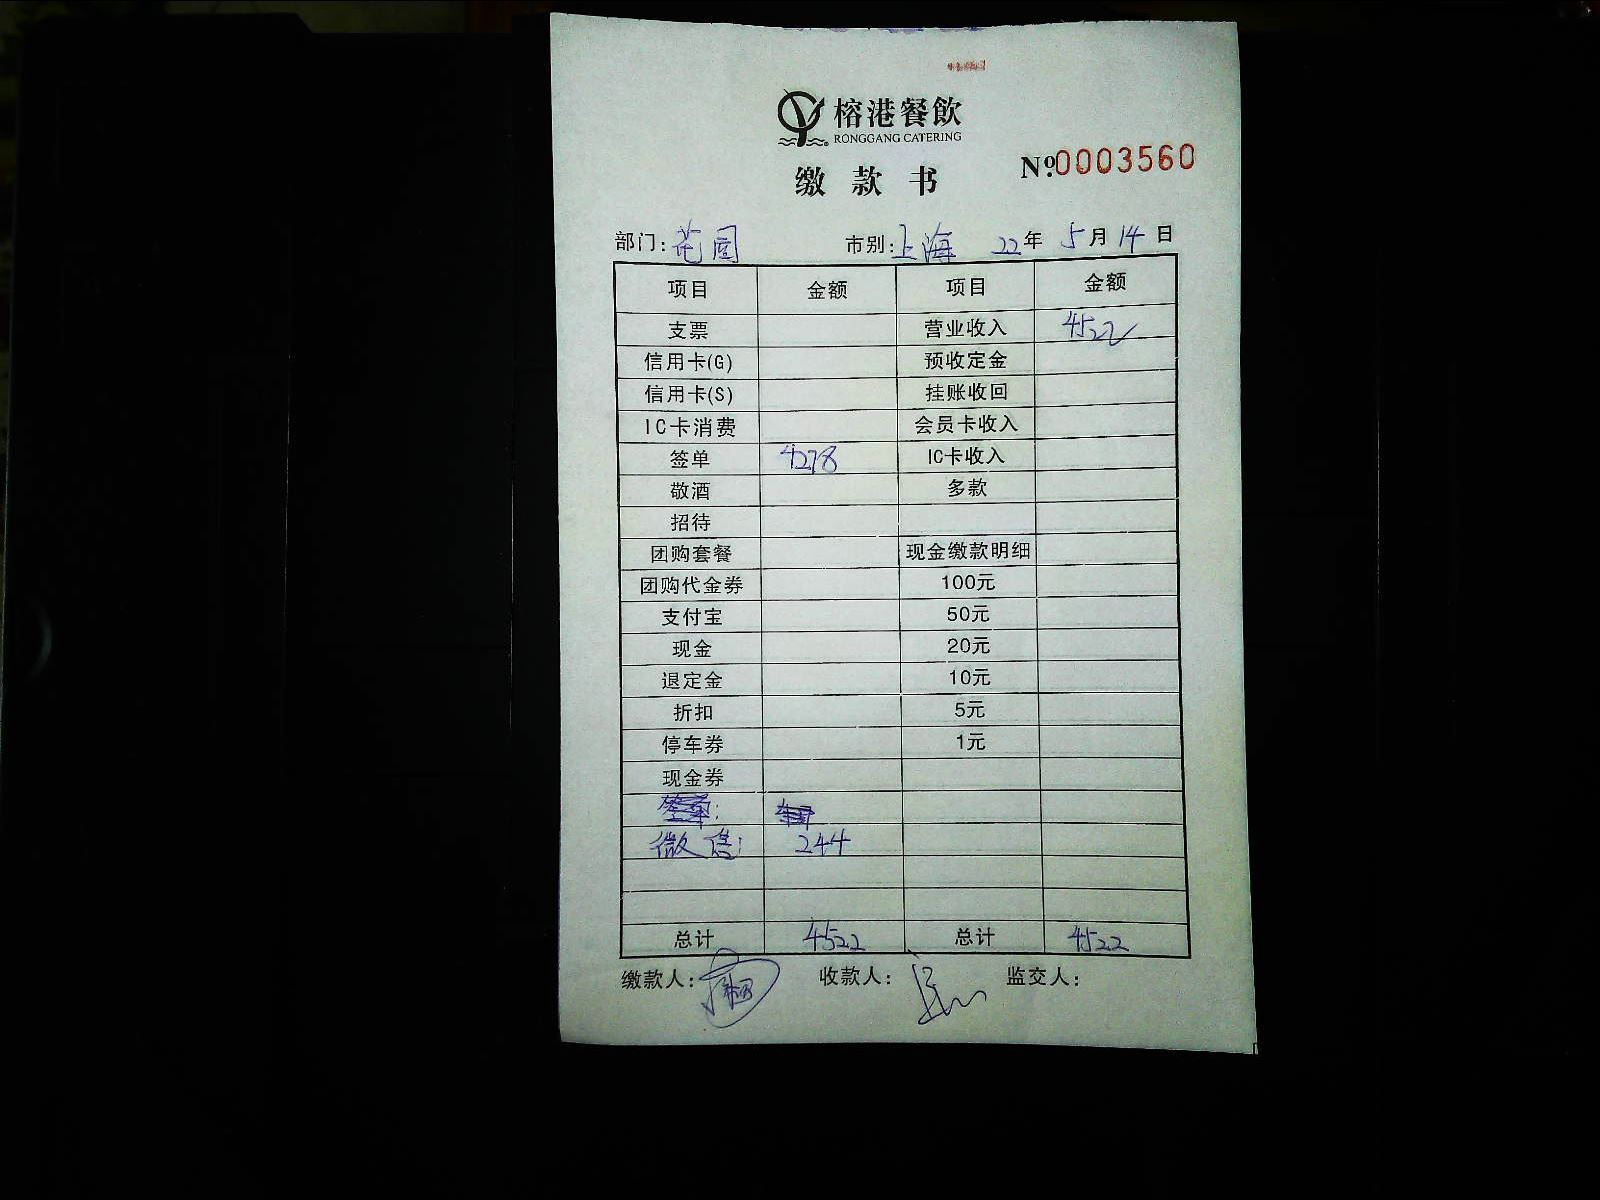 榕港餐飲
RONGGANG CATERING
缴款书
Nº.0003560
部门:花园 市别:上海 22年 5月14日
项目 金额 项目 金额
支票 营业收入 4522
信用卡(G) 预收定金
信用卡(S) 挂账收回
IC卡消费 会员卡收入
签单 4278 IC卡收入
敬酒 多款
招待
团购套餐 现金缴款明细
团购代金券 100元
支付宝 50元
现金 20元
退定金 10元
折扣 5元
停车券 1元
现金券
微信: 244
总计 4522 总计 4522
缴款人: 收款人: 监交人: